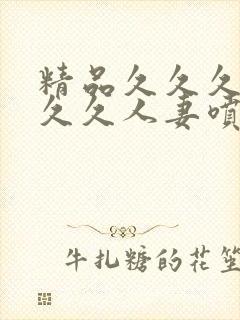 精品久久久
久久人妻喷
牛扎糖的花笙